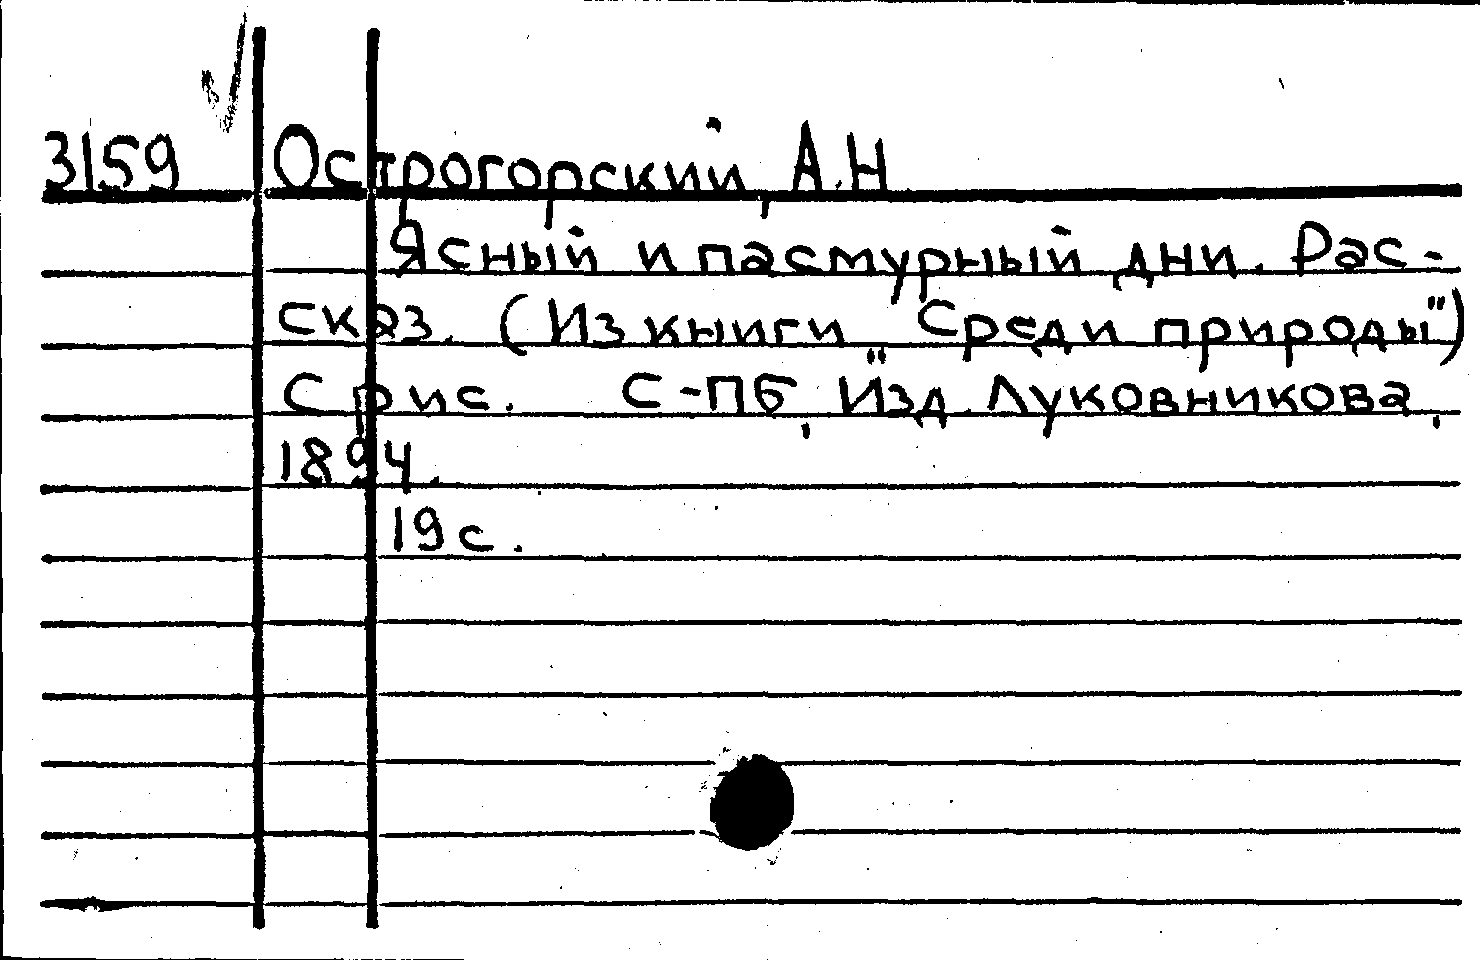 3159 Острогорский, А.Н
Ясный и пасмурный дни. Рас-
сказ. (Из книги „Среди природы")
С рис. С-ПБ, Изд. Луковникова,
1894.
19 с.